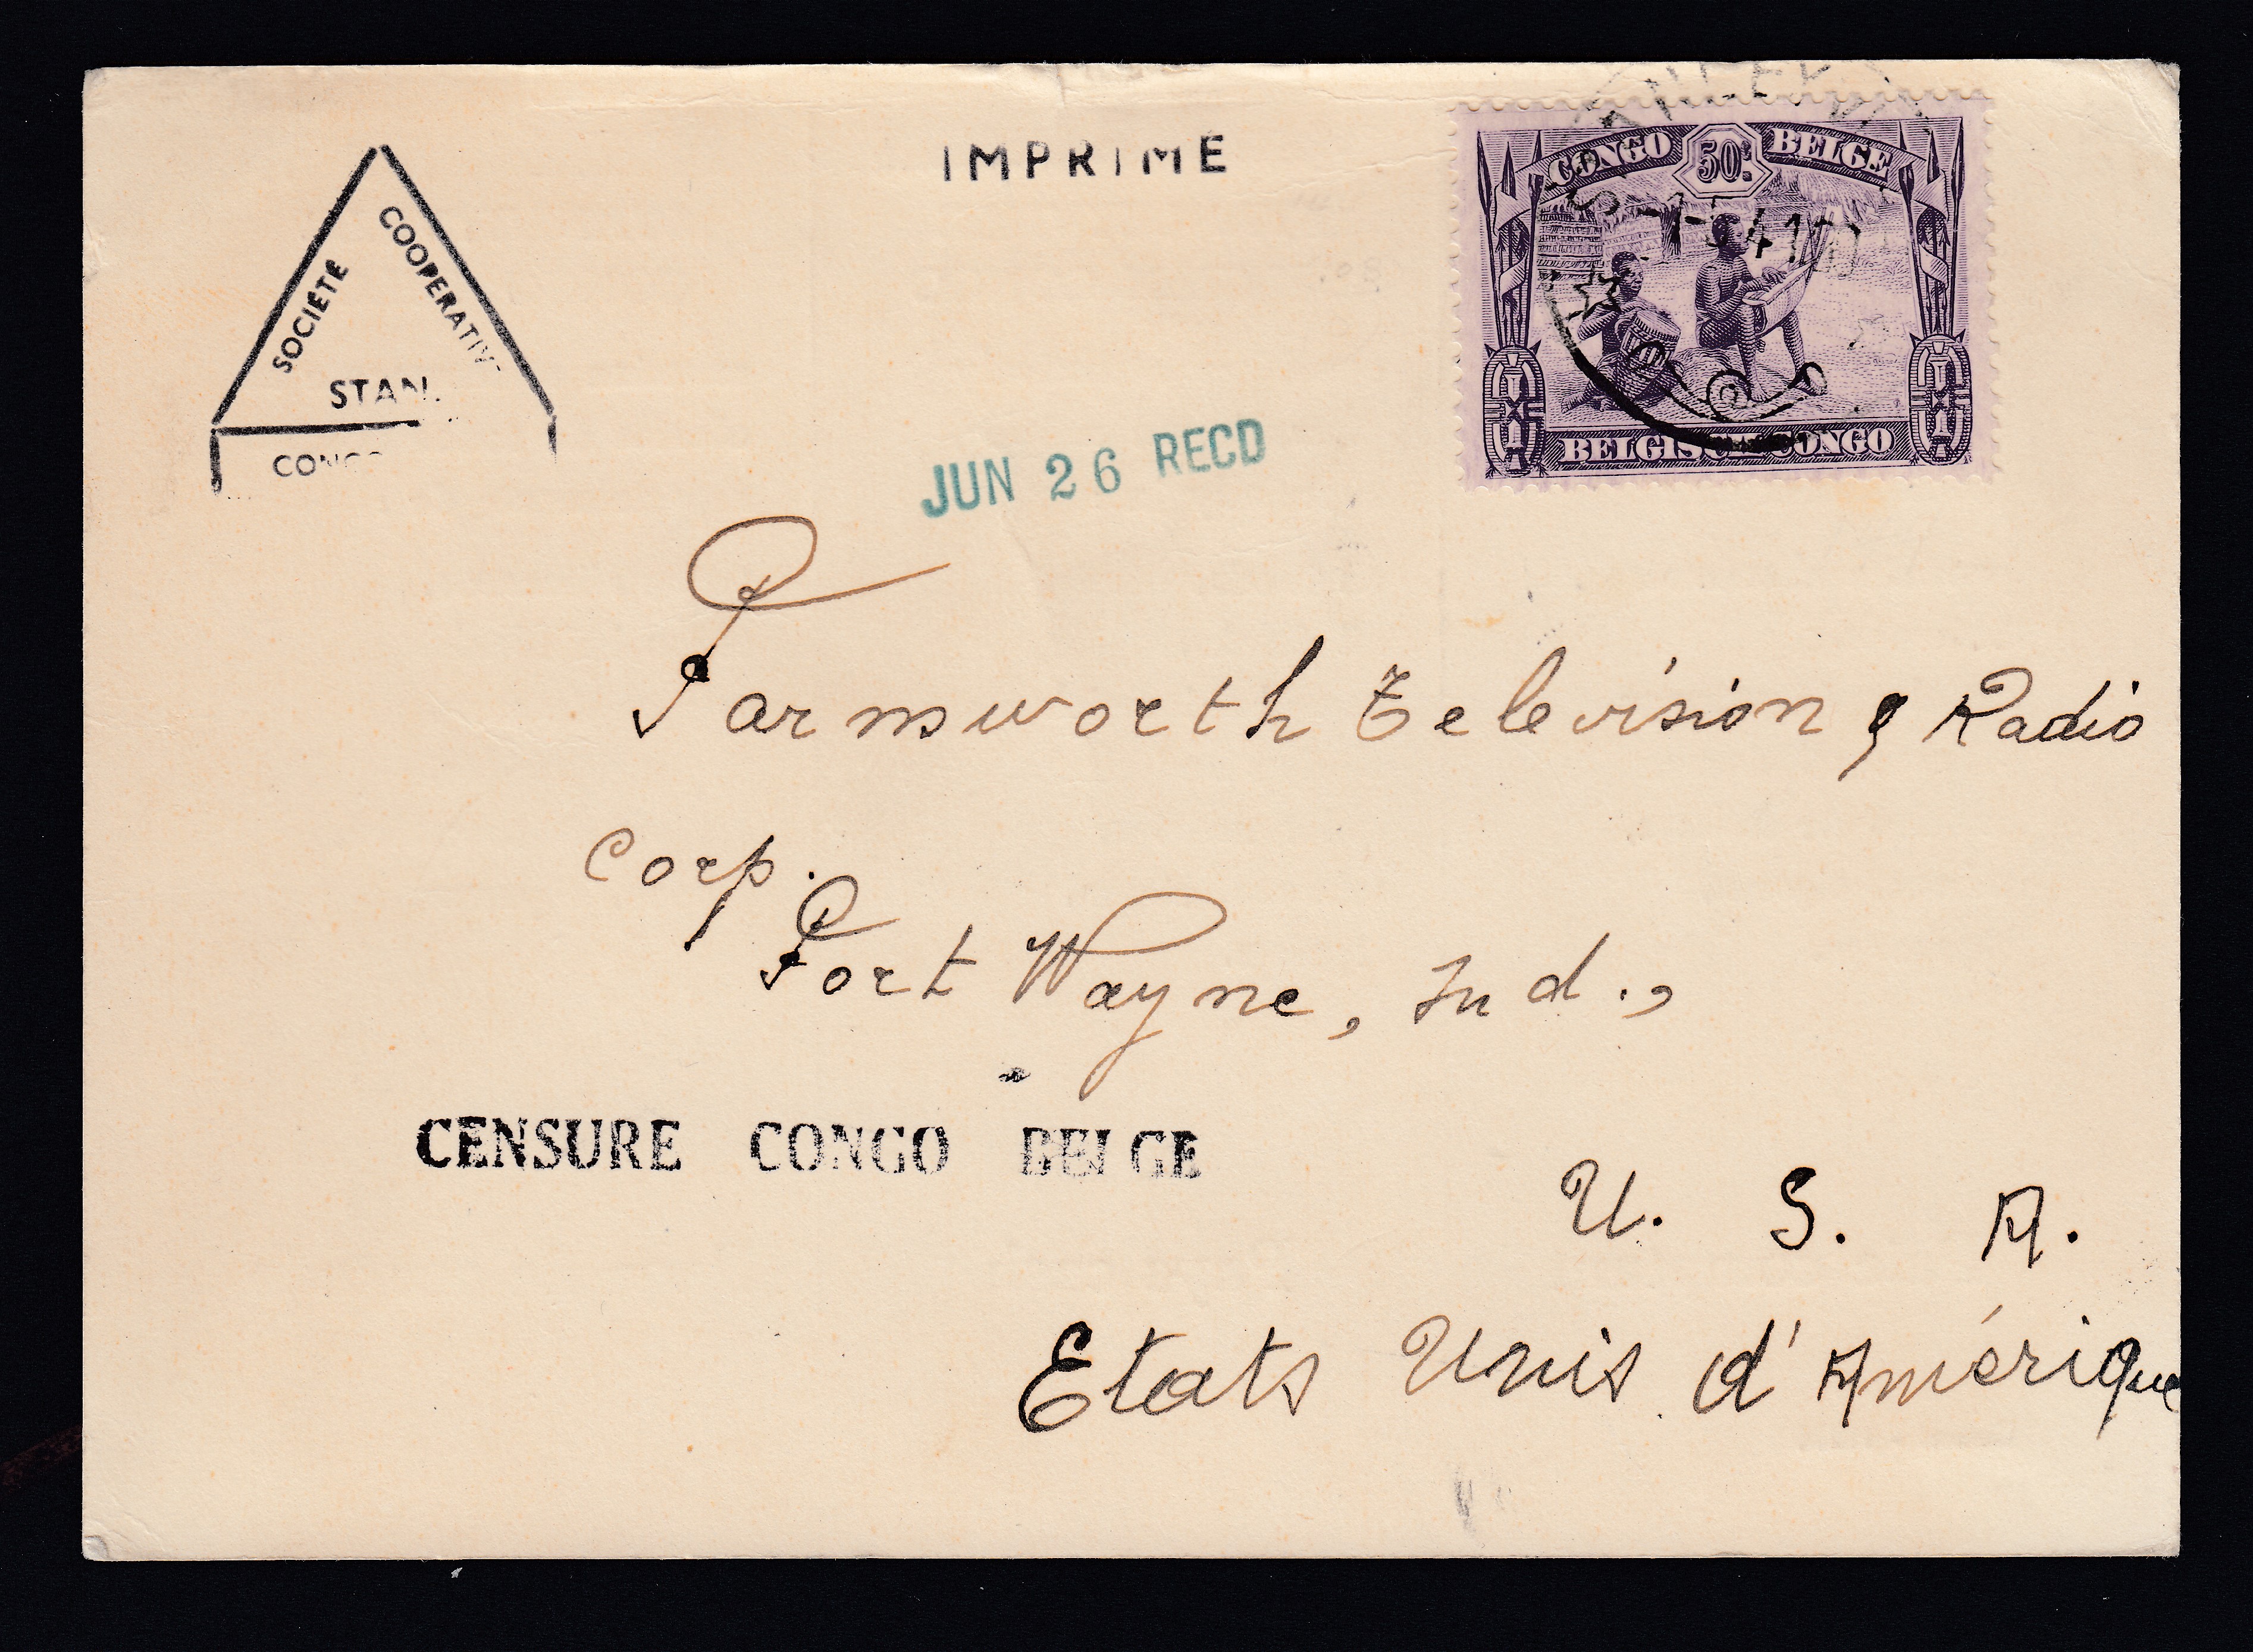 IMPRIMÉ
SOCIÉTÉ
COOPERATIV
STAN.
CONGO
CONGO 50c. BELGE
-1-5-41
BELGISCH CONGO
JUN 26 RECD
Farnsworth Television & Radio
Corp.
Fort Wayne, Ind.,
CENSURE CONGO BELGE
U. S. A.
Etats Unis d'Amérique